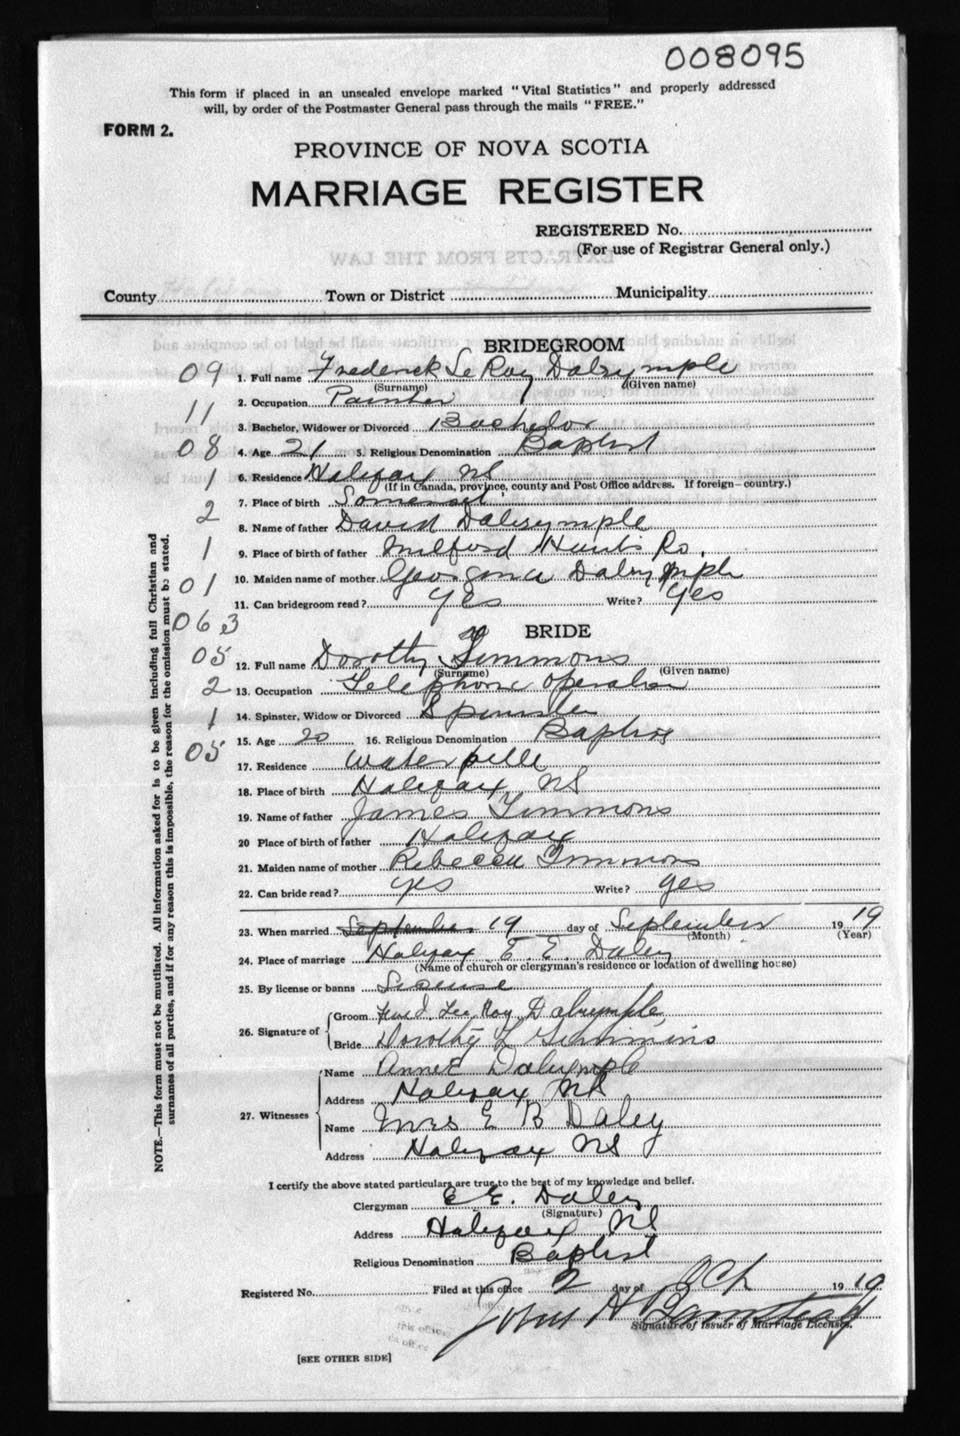 008095
This form if placed in an unsealed envelope marked "Vital Statistics" and properly addressed
will, by order of the Postmaster General pass through the mails "FREE."
FORM 2.
PROVINCE OF NOVA SCOTIA
MARRIAGE REGISTER
REGISTERED No.
(For use of Registrar General only.)
County Halifax Town or District Municipality
BRIDEGROOM
09 1. Full name Frederick Le Roy Dalrymple
(Surname) (Given name)
11 2. Occupation Painter
3. Bachelor, Widower or Divorced Bachelor
08 4. Age 21 5. Religious Denomination Baptist
1 6. Residence Halifax NS
(If in Canada, province, county and Post Office address. If foreign—country.)
2 7. Place of birth Somerset
8. Name of father David Dalrymple
1 9. Place of birth of father Milford Hants Co.
01 10. Maiden name of mother Georgina Dalrymple
11. Can bridegroom read? yes Write? yes
063
BRIDE
05 12. Full name Dorothy Timmons
(Surname) (Given name)
2 13. Occupation Telephone operator
1 14. Spinster, Widow or Divorced Spinster
05 15. Age 20 16. Religious Denomination Baptist
17. Residence Waterville
18. Place of birth Halifax, NS
19. Name of father James Timmons
20 Place of birth of father Halifax
21. Maiden name of mother Rebecca Timmons
22. Can bride read? yes Write? yes
23. When married September 19 day of September 19 19
(Month) (Year)
24. Place of marriage Halifax E. E. Daley
(Name of church or clergyman's residence or location of dwelling house)
25. By license or banns License
26. Signature of Groom Fred. Lee Roy Dalrymple
Bride Dorothy L Timmins
27. Witnesses Name Annie Dalrymple
Address Halifax NS
Name Mrs E B Daley
Address Halifax NS
I certify the above stated particulars are true to the best of my knowledge and belief.
Clergyman E. E. Daley
(Signature)
Address Halifax NS
Religious Denomination Baptist
Registered No. Filed at this office 2 day of Oct 19 19
John H
Signature of Issuer of Marriage Licenses.
[SEE OTHER SIDE]
NOTE.—This form must not be mutilated. All information asked for is to be given including full Christian and
surnames of all parties, and if for any reason this is impossible, the reason for the omission must be stated.